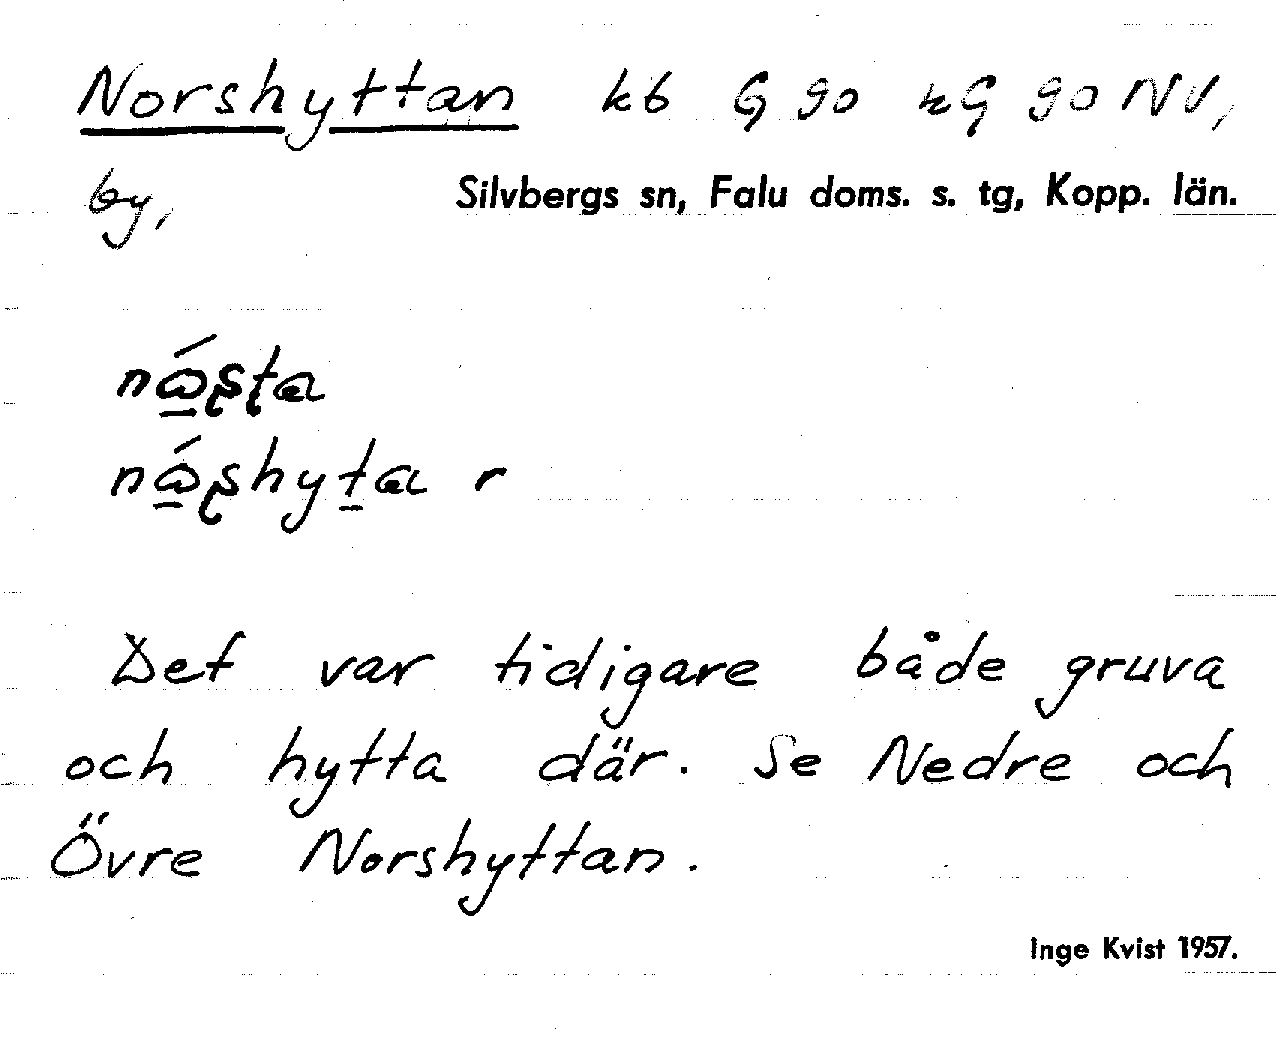 Norshyttan kb G 90 kG 90 NV,
by, Silvbergs sn, Falu doms. s. tg, Kopp. län.
Det var tidigare både gruva
och hytta där. Se Nedre och
Övre Norshyttan.
Inge Kvist 1957.